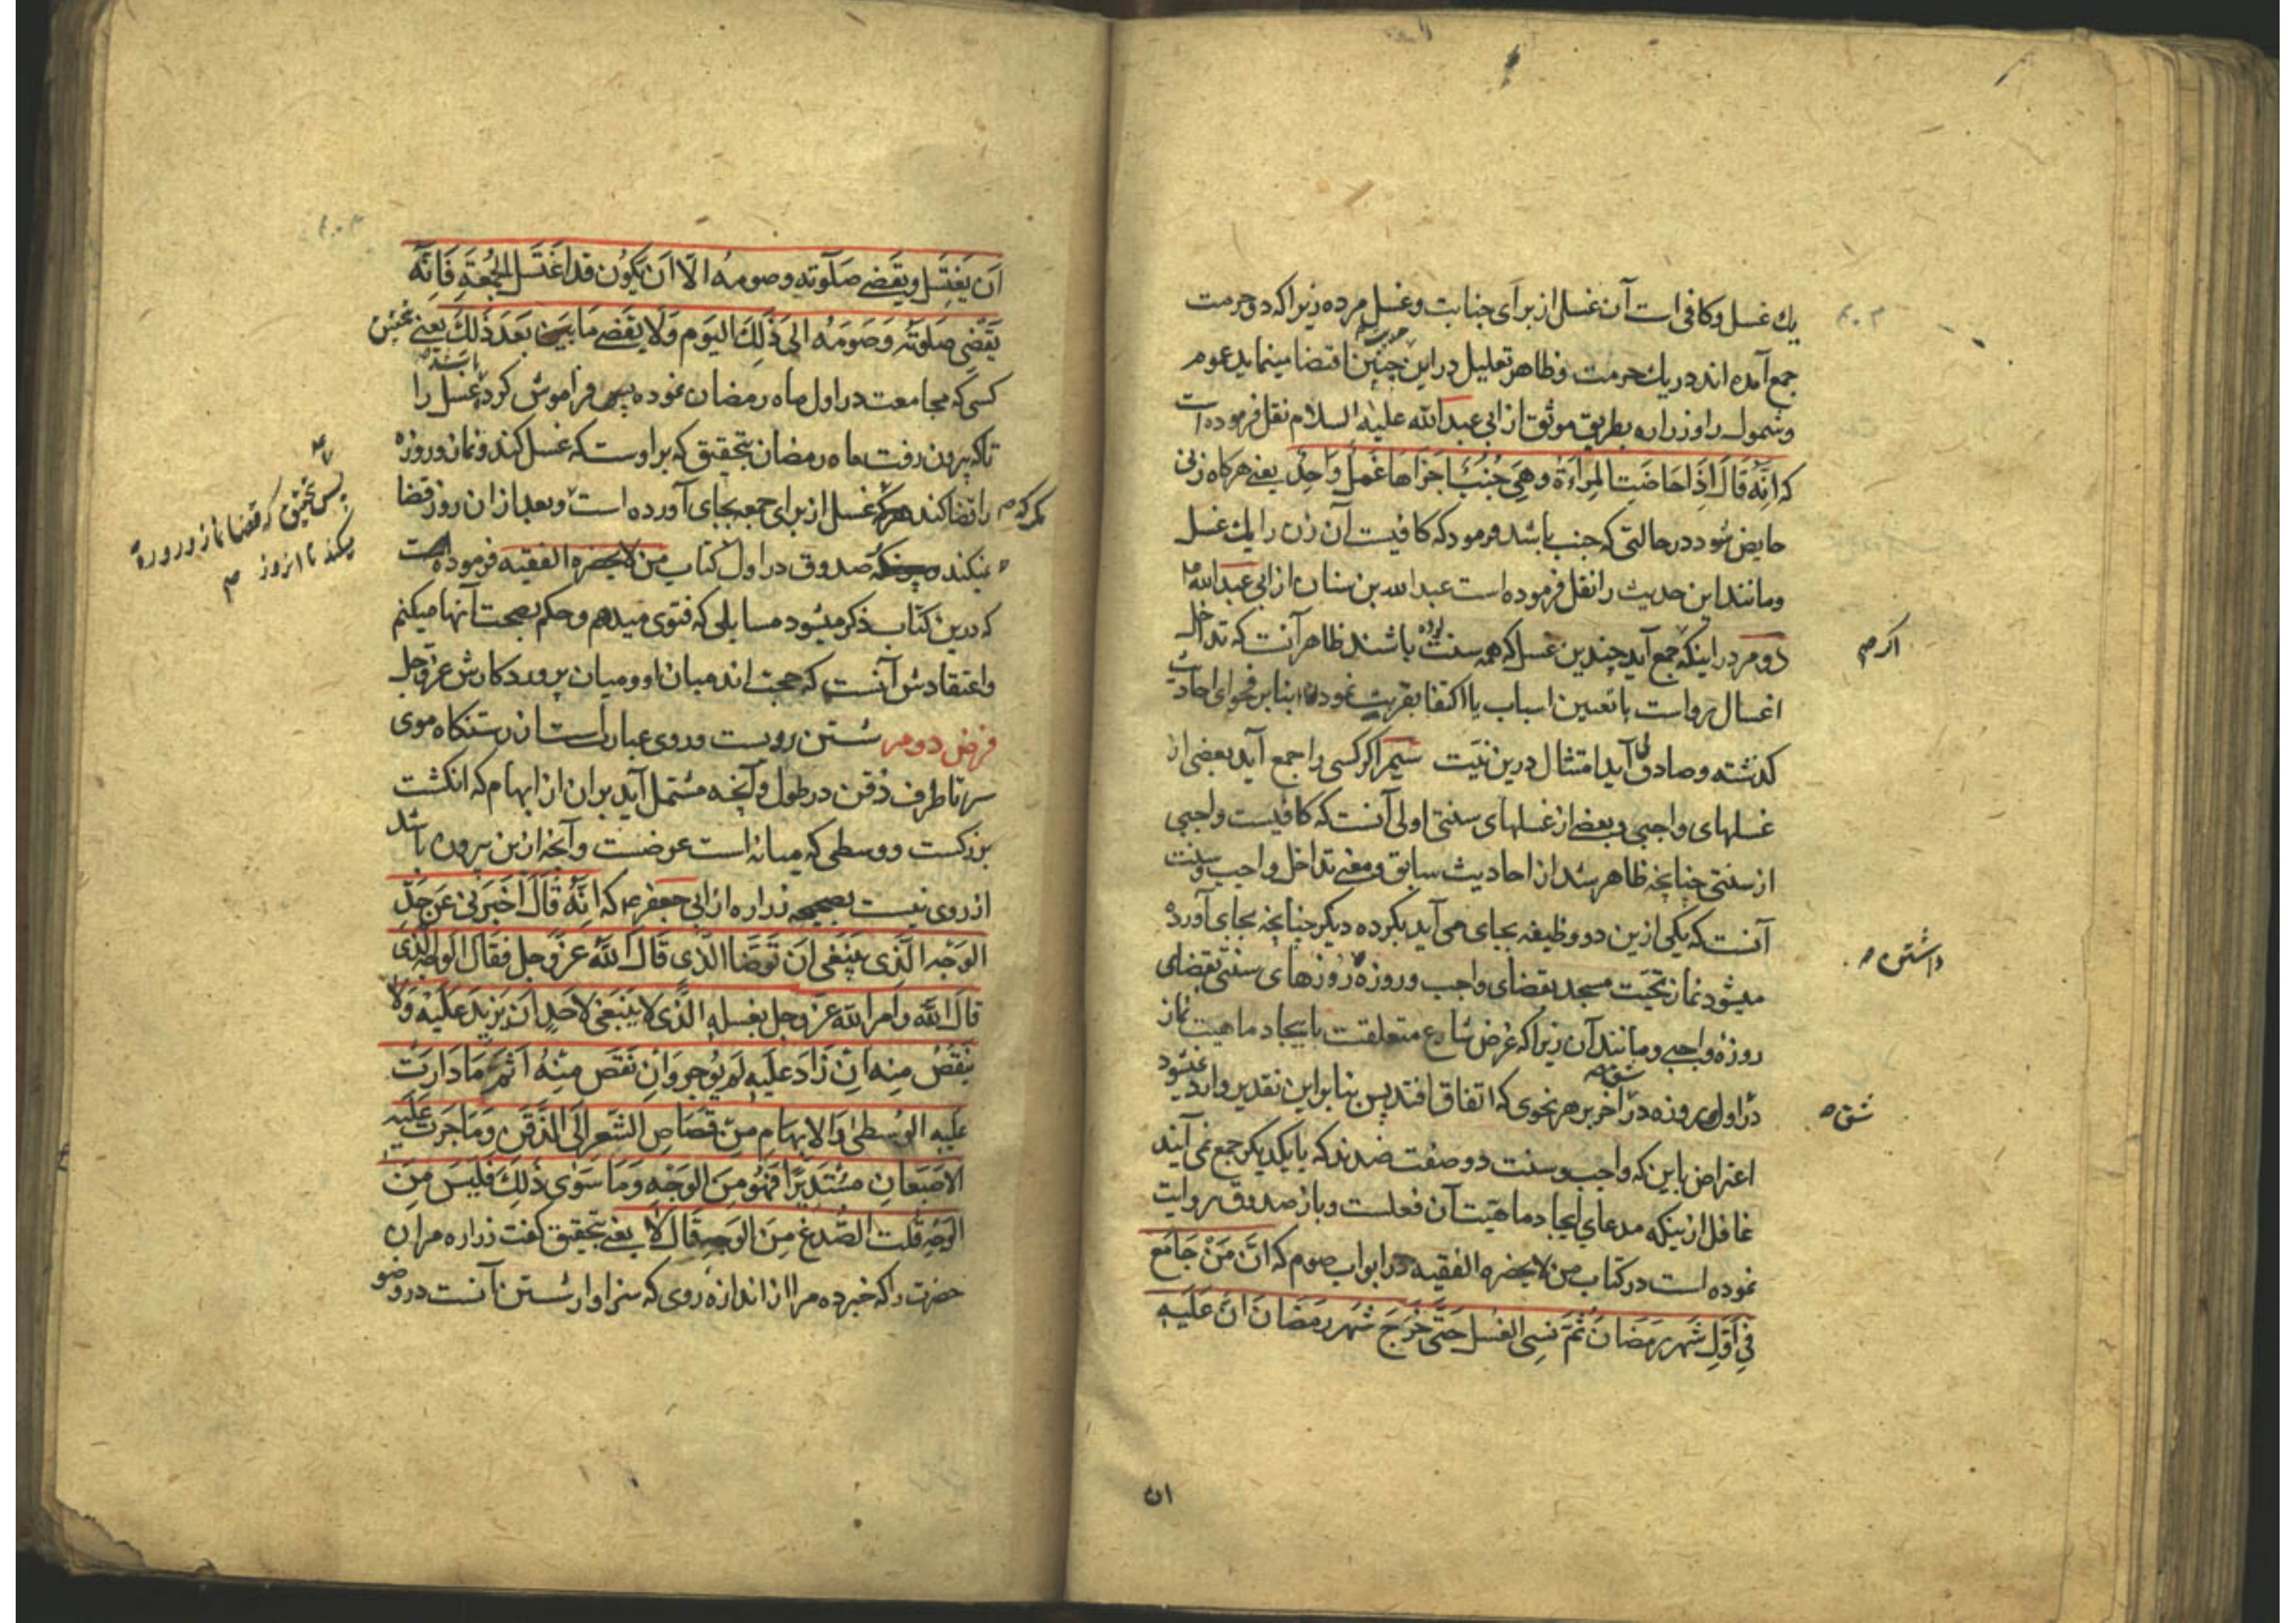 يك غسل و كافى است آن غسل از براى جنابت و غسل مرده زيرا كه دو حرمت
جمع آمده اند در يك حرمت و ظاهر تعليل در اين چنين اقتضا مينمايد عموم
و شمول را و زراره بطريق موثق از ابى عبد الله عليه السلام نقل فرموده است
كه اِنَّه قَالَ اِذَا حَاضَتِ المِراَةُ وهِىَ جُنُبٌ اَجزَاهَا غُسلٌ وَاحِدٌ يعنى هر كاه زنى
حايض شود در حالتى كه جنب باشد فرمود كه كافيست آن زن را يك غسل
و مانند اين حديث را نقل فرموده است عبد الله بن سنان از ابى عبد الله ع
دومر در اينكه جمع آيد چندين غسل كه همه سنت بوده باشند ظاهر آنست كه تداخل
اغسال رواست با تعيين اسباب يا اكتفا بقربت نمودن بنابر فحواى احاديث
كذشته و صادق آيد امتثال درين نيت سيم اكر كسى را جمع آيد بعضى از
غسلهاى واجبى و بعضى از غسلهاى سنتى اولى آنست كه كافيست واجبى
از سنتى چنانچه ظاهر شد از احاديث سابق و معنى تداخل واجب و سنت
آنست كه يكى ازين دو وظيفه بجاى مى آيد بكرده ديكر چنانچه بجاى آورده
ميشود نماز تحيت مسجد بقضاى واجب و روزه روزهاى سنتى بقضاى
روزه واجبى و مانند آن زيرا كه غرض شارع متعلقست بايجاد ماهيت نماز
در اول و روزه در آخر بر هر نحوى كه اتفاق افتد پس بنابر اين تقدير وارد نميشود
اعتراض باين كه واجب و سنت دو صفت ضدند كه با يكديكر جمع نمى آيند
غافل از اينكه مدعاى ايجاد ماهيت آن فعلست و باز صدوق روايت
نموده است در كتاب من لا يحضره الفقيه در ابواب صوم كه اَنَّ مَنْ جَامَعَ
فِى اَوَّلِ شَهرِ رَمَضَانَ ثُمَّ نَسِىَ الغُسلَ حَتّى خَرَجَ شَهرُ رَمَضَانَ اَنَّ عَلَيهِ
ان
اكر صح
داشتن ص
شق ص
اَن يَغتَسِلَ ويَقضَى صَلوتَه وصومَهُ الّا اَن يَكُونَ قَد اغتَسَلَ الجُمُعَةِ فَاِنَّه
يَقضِى صَلوتَهُ وَصَومَهُ الىَ ذَلِكَ اليَوم وَلَا يَقضِى مَا بَعدَ ذَلِكَ يعنى بتحقيق
كسى كه مجامعت در اول ماه رمضان نموده باشد پس فراموش كرد غسل را
تا كه بيرون رفت ماه رمضان بتحقيق كه بر اوست كه غسل كند و نماز و روزه
را قضا كند غسل از براى جمعه بجاى آورده است و بعد از ان روز قضا
نيكنده صدوق در اول كتاب من لا يحضره الفقيه فرموده است
كه درين كتاب ذكر ميشود مسايلى كه فتوى ميدهم و حكم بصحت آنها ميكنم
و اعتقادش آنست كه حجت اند ميان او و ميان پروردكارش عز و جل
فرض دومر شستن رويست و روى عبارتست از رستنكاه موى
سر تا طرف ذقن در طول و آنچه مشتمل آيد بران از ابهام كه انكشت
بزركست و وسطى كه ميانه است عرضست و آنچه ازين بيرون باشد
از روى نيست بصحيحه زراره از ابى جعفر ع كه اِنَّهُ قَالَ اَخبَرنِى عَن حَدِّ
الوَجه الَّذى يَنبَغى اَن تَوَضَّا الذى قَالَ اللهُ عزَّ وجل فقَالَ الوَجهُ الَّذى
قالَ اللهُ وَ امر الله عَزَّ وجل بغسلِهِ الَّذى لا يَنبَغى لاحَدٍ اَن يَزيدَ عَلَيْه وَلَا
يَنقُصُ مِنه اِن زَادَ عَلَيهِ لَم يُوجر وَاِن نَقَصَ مِنْهُ اَثِمَ مَا دَارَت
عَلَيهِ الوُسطى وَالابهَامِ مِن قُصَاصِ الشَّعرِ اِلَى الذَّقَنِ وَمَا جَرَت عَلَيهِ
الاِصبَعَانِ مُستَديرًا فَهُوَ مِنَ الوَجهِ وَمَا سَوى ذَلِكَ فَلَيسَ مِنَ
الوَجهِ قُلت الصُّدغ مِنَ الوَجهِ قَالَ لَا يعنى بتحقيق كفت زراره مر ان
حضرت را كه خبر ده مرا از اندازه روى كه سزاوار شستن آنست در وضو
مكر كه ص
پس بتحقيق كه قضا نماز و روزه
ميكند تا انروز ص